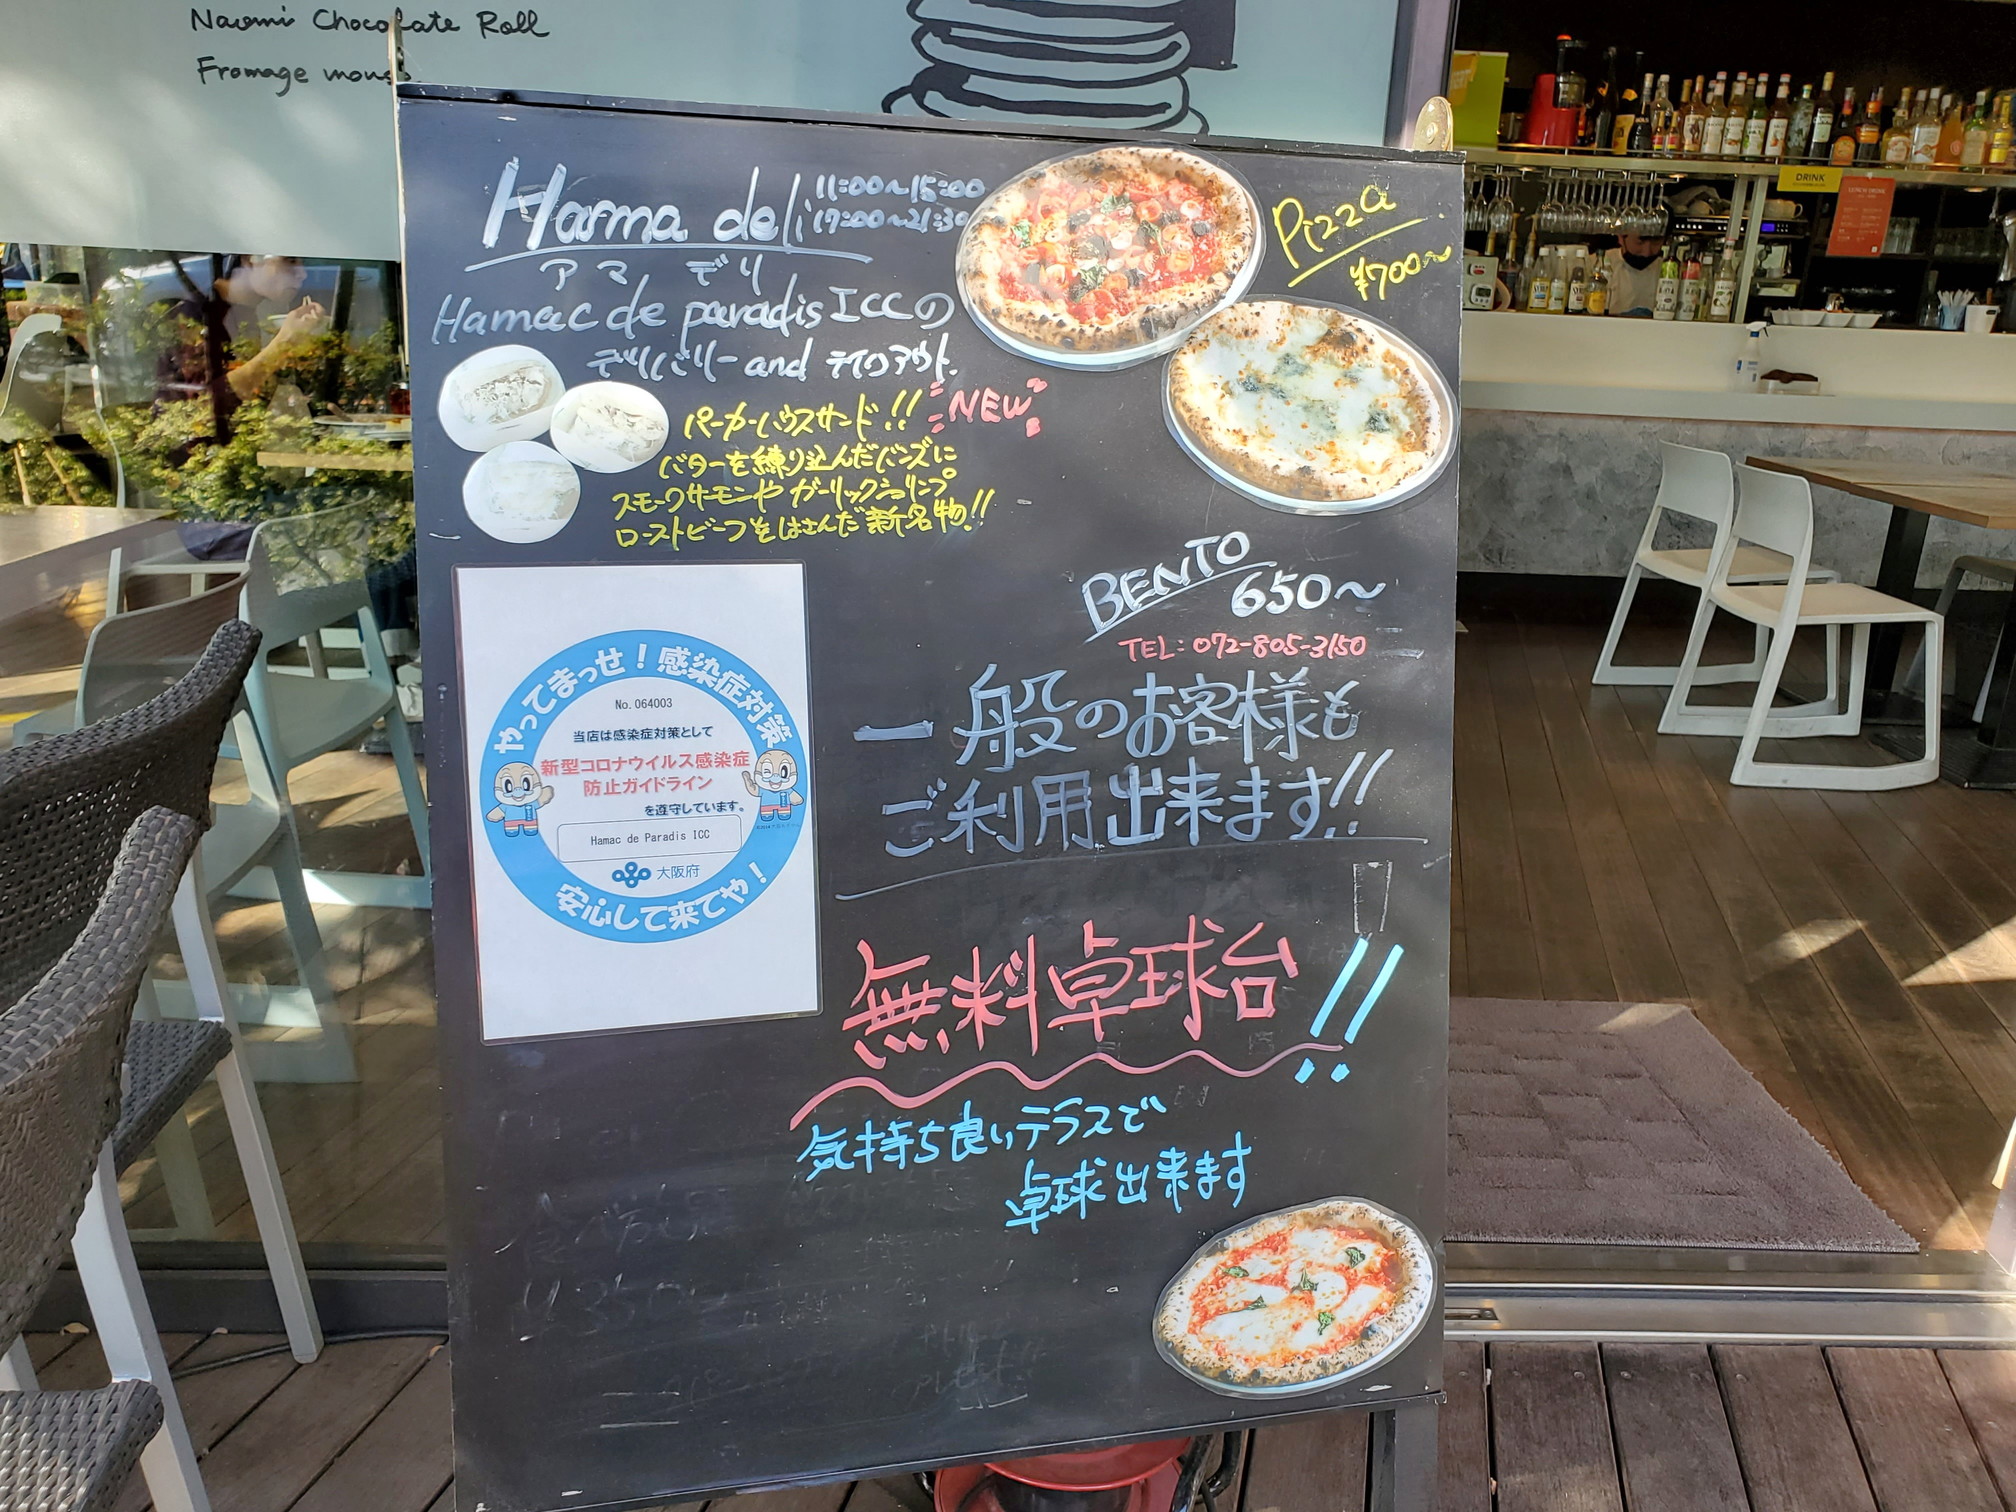 Naomi Chocolate Roll
Fromage mous
Hama deli
11:00～15:00
17:00～21:30
アマ デリ
Hamac de paradis ICCの
デリバリー and テイクアウト
Pizza
¥700～
パーカーハウスサンド!! NEW
バターを練り込んだバンズに
スモークサーモンやガーリックシュリンプ
ローストビーフをはさんだ新名物!!
BENTO
650～
TEL:072-805-3150
一般のお客様も
ご利用出来ます!!
やってまっせ！感染症対策
No.064003
当店は感染症対策として
新型コロナウイルス感染症
防止ガイドライン
を遵守しています。
Hamac de Paradis ICC
大阪府
安心して来てや！
無料卓球台!!
気持ち良いテラスで
卓球出来ます
DRINK